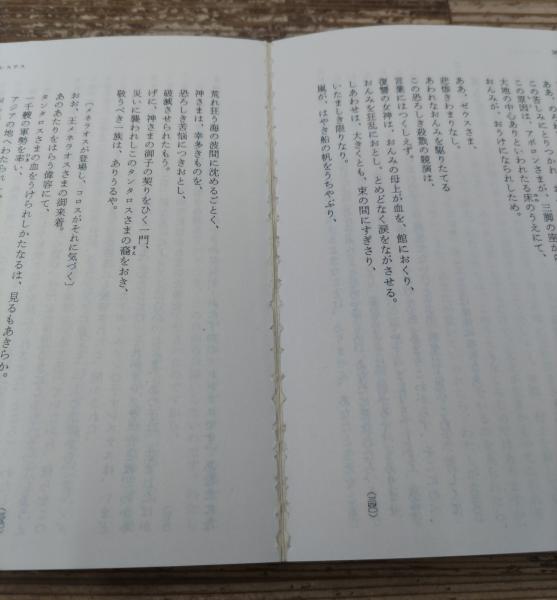 この苦しみ
この意図は、アポロンさまが、三脚の
大地の中心ありといわれたる床のうえにて、
おんみが、おうけになられしため。
ああ、ゼウスさま、
悲惨きわまりなし、
あわれなおんみを駆りたてる
この恐ろしき殺戮の競演は、
言葉にはつくしえず。
復讐の女神は、おんみの母上が血を、館におくり、
おんみを狂乱におとし、とめどなく涙をながさせる。
しあわせは、大きくとも、束の間にすぎさり、
いたましき限りなり。
嵐が、はやき船の帆をうちやぶり、
レステス
荒れ狂う海の波間に沈めるごとく、
神さまは、幸多きものを、
恐ろしき苦悩につきおとし、
破滅させられたもう。
げに、神さまの御子の契りをひく一門、
災いに襲われしこのタンタロスさまの裔をおき、
すえ
敬うべき一族は、ありうるや。
〔メネラオスが登場し、コロスがそれに気づく〕
おお、王メネラオスさまの御来着。
あのあたりをはらう偉容にて、
タンタロスさまの血をうけられしかたなるは、見るもあきらか。
一千艘の軍勢を率い、
アジアの地へわたら